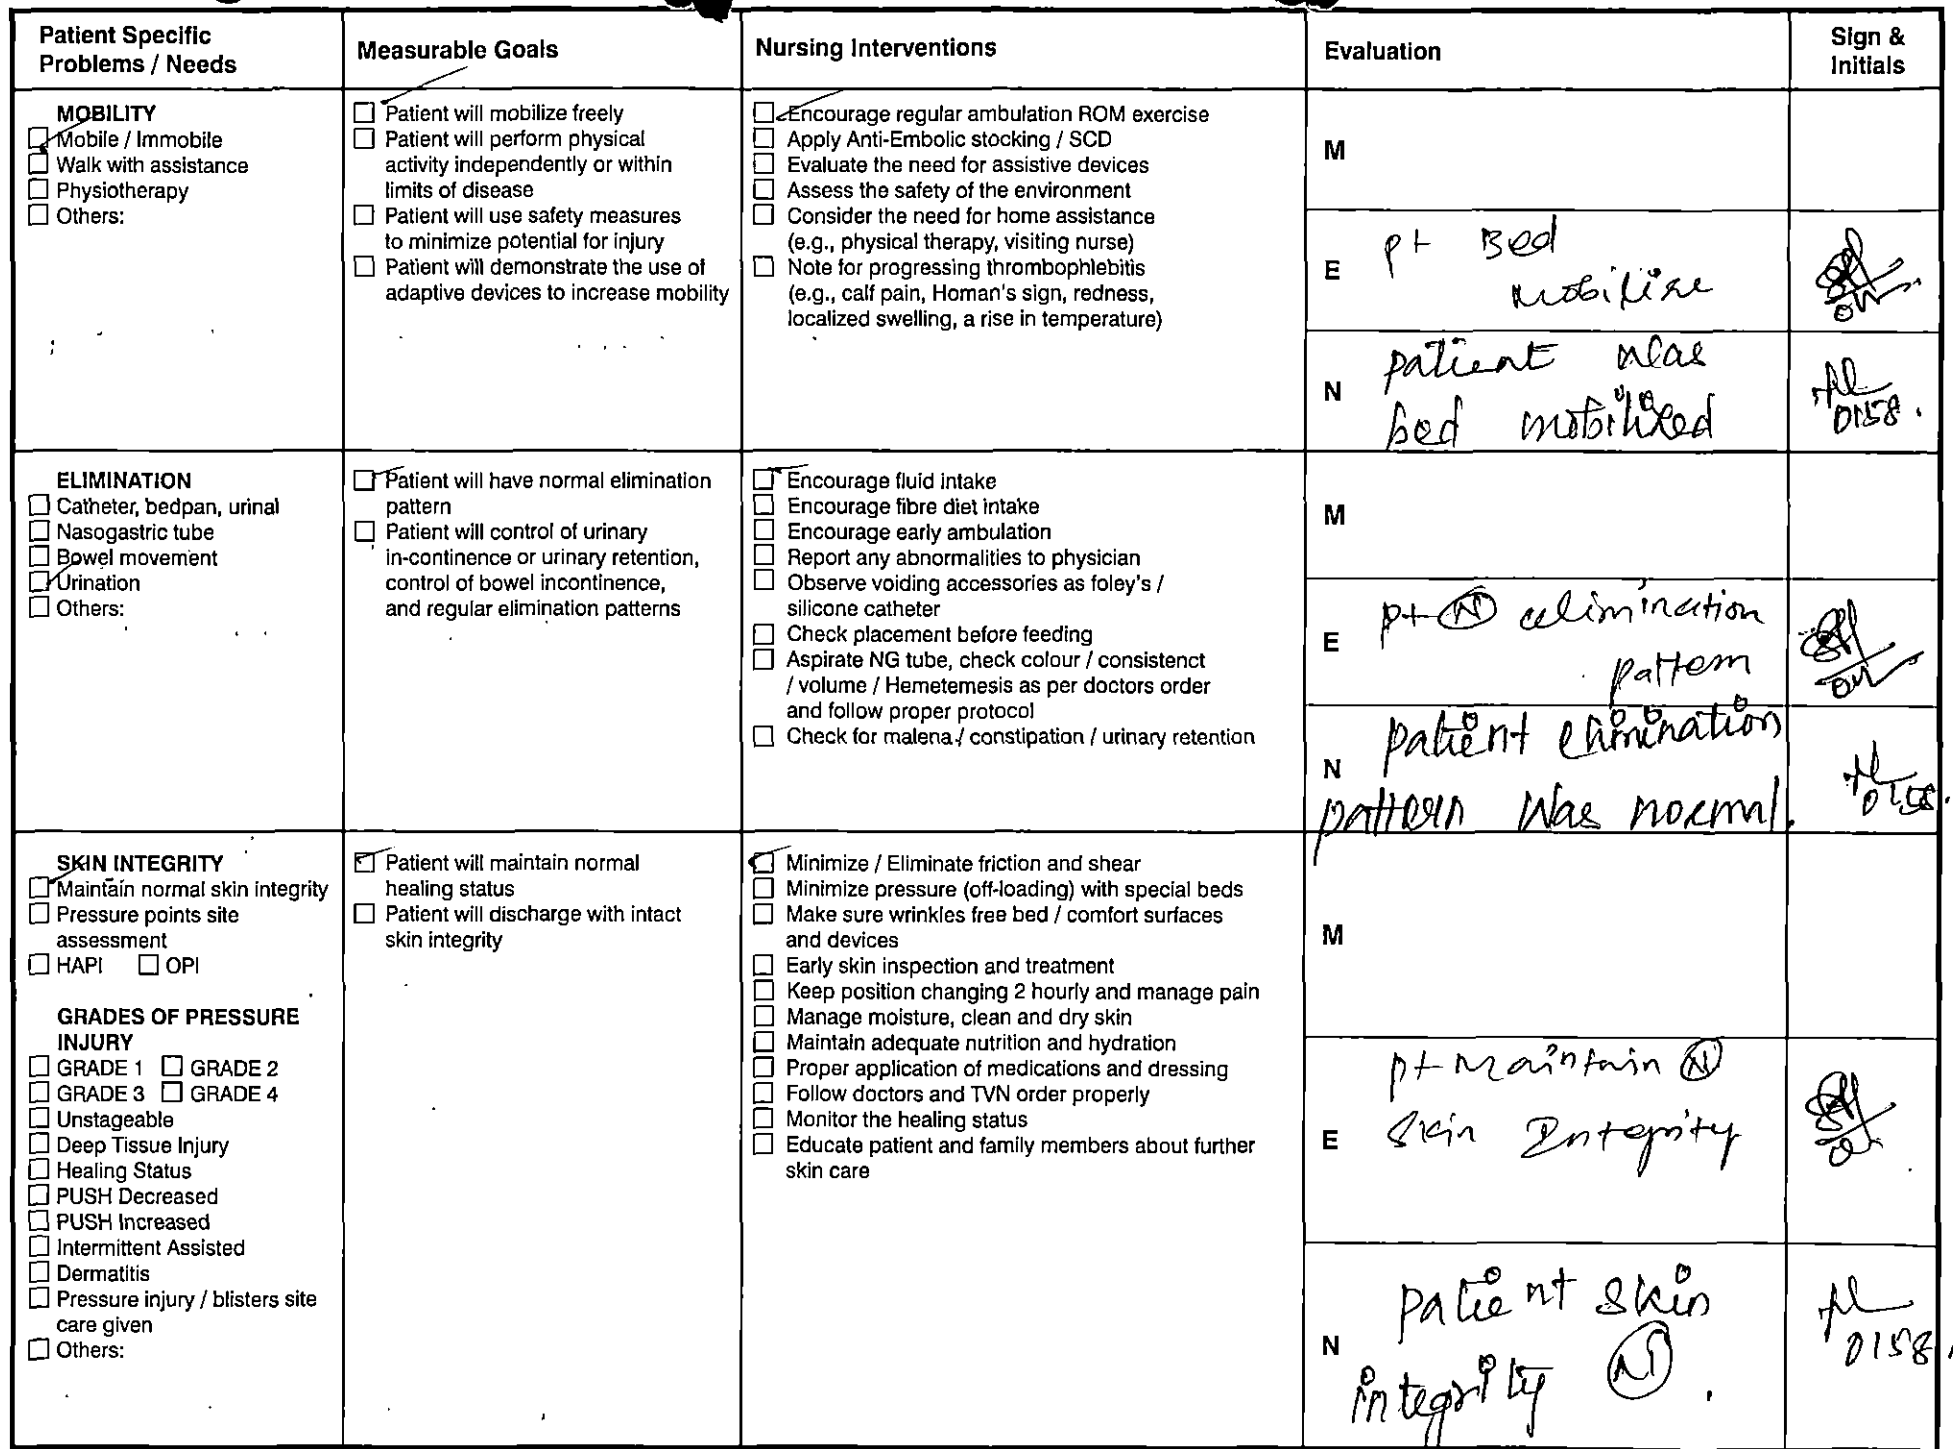 Patient Specific
Problems / Needs
Measurable Goals
Nursing Interventions
Evaluation
Sign &
Initials
MOBILITY
☐ Mobile / Immobile
☐ Walk with assistance
☐ Physiotherapy
☐ Others:
☐ Patient will mobilize freely
☐ Patient will perform physical
activity independently or within
limits of disease
☐ Patient will use safety measures
to minimize potential for injury
☐ Patient will demonstrate the use of
adaptive devices to increase mobility
☐ Encourage regular ambulation ROM exercise
☐ Apply Anti-Embolic stocking / SCD
☐ Evaluate the need for assistive devices
☐ Assess the safety of the environment
☐ Consider the need for home assistance
(e.g., physical therapy, visiting nurse)
☐ Note for progressing thrombophlebitis
(e.g., calf pain, Homan's sign, redness,
localized swelling, a rise in temperature)
M
E pt Bed
mobilize
N patient was
bed mobilized
0158.
ELIMINATION
☐ Catheter, bedpan, urinal
☐ Nasogastric tube
☐ Bowel movement
☐ Urination
☐ Others:
☐ Patient will have normal elimination
pattern
☐ Patient will control of urinary
in-continence or urinary retention,
control of bowel incontinence,
and regular elimination patterns
☐ Encourage fluid intake
☐ Encourage fibre diet intake
☐ Encourage early ambulation
☐ Report any abnormalities to physician
☐ Observe voiding accessories as foley's /
silicone catheter
☐ Check placement before feeding
☐ Aspirate NG tube, check colour / consistenct
/ volume / Hemetemesis as per doctors order
and follow proper protocol
☐ Check for malena / constipation / urinary retention
M
E pt Ⓝ elimination
pattern
N patient elimination
pattern was normal.
0158.
SKIN INTEGRITY
☐ Maintain normal skin integrity
☐ Pressure points site
assessment
☐ HAPI ☐ OPI
GRADES OF PRESSURE
INJURY
☐ GRADE 1 ☐ GRADE 2
☐ GRADE 3 ☐ GRADE 4
☐ Unstageable
☐ Deep Tissue Injury
☐ Healing Status
☐ PUSH Decreased
☐ PUSH Increased
☐ Intermittent Assisted
☐ Dermatitis
☐ Pressure injury / blisters site
care given
☐ Others:
☐ Patient will maintain normal
healing status
☐ Patient will discharge with intact
skin integrity
☐ Minimize / Eliminate friction and shear
☐ Minimize pressure (off-loading) with special beds
☐ Make sure wrinkles free bed / comfort surfaces
and devices
☐ Early skin inspection and treatment
☐ Keep position changing 2 hourly and manage pain
☐ Manage moisture, clean and dry skin
☐ Maintain adequate nutrition and hydration
☐ Proper application of medications and dressing
☐ Follow doctors and TVN order properly
☐ Monitor the healing status
☐ Educate patient and family members about further
skin care
M
E pt Maintain Ⓝ
Skin Integrity
N patient skin
integrity Ⓝ.
0158.